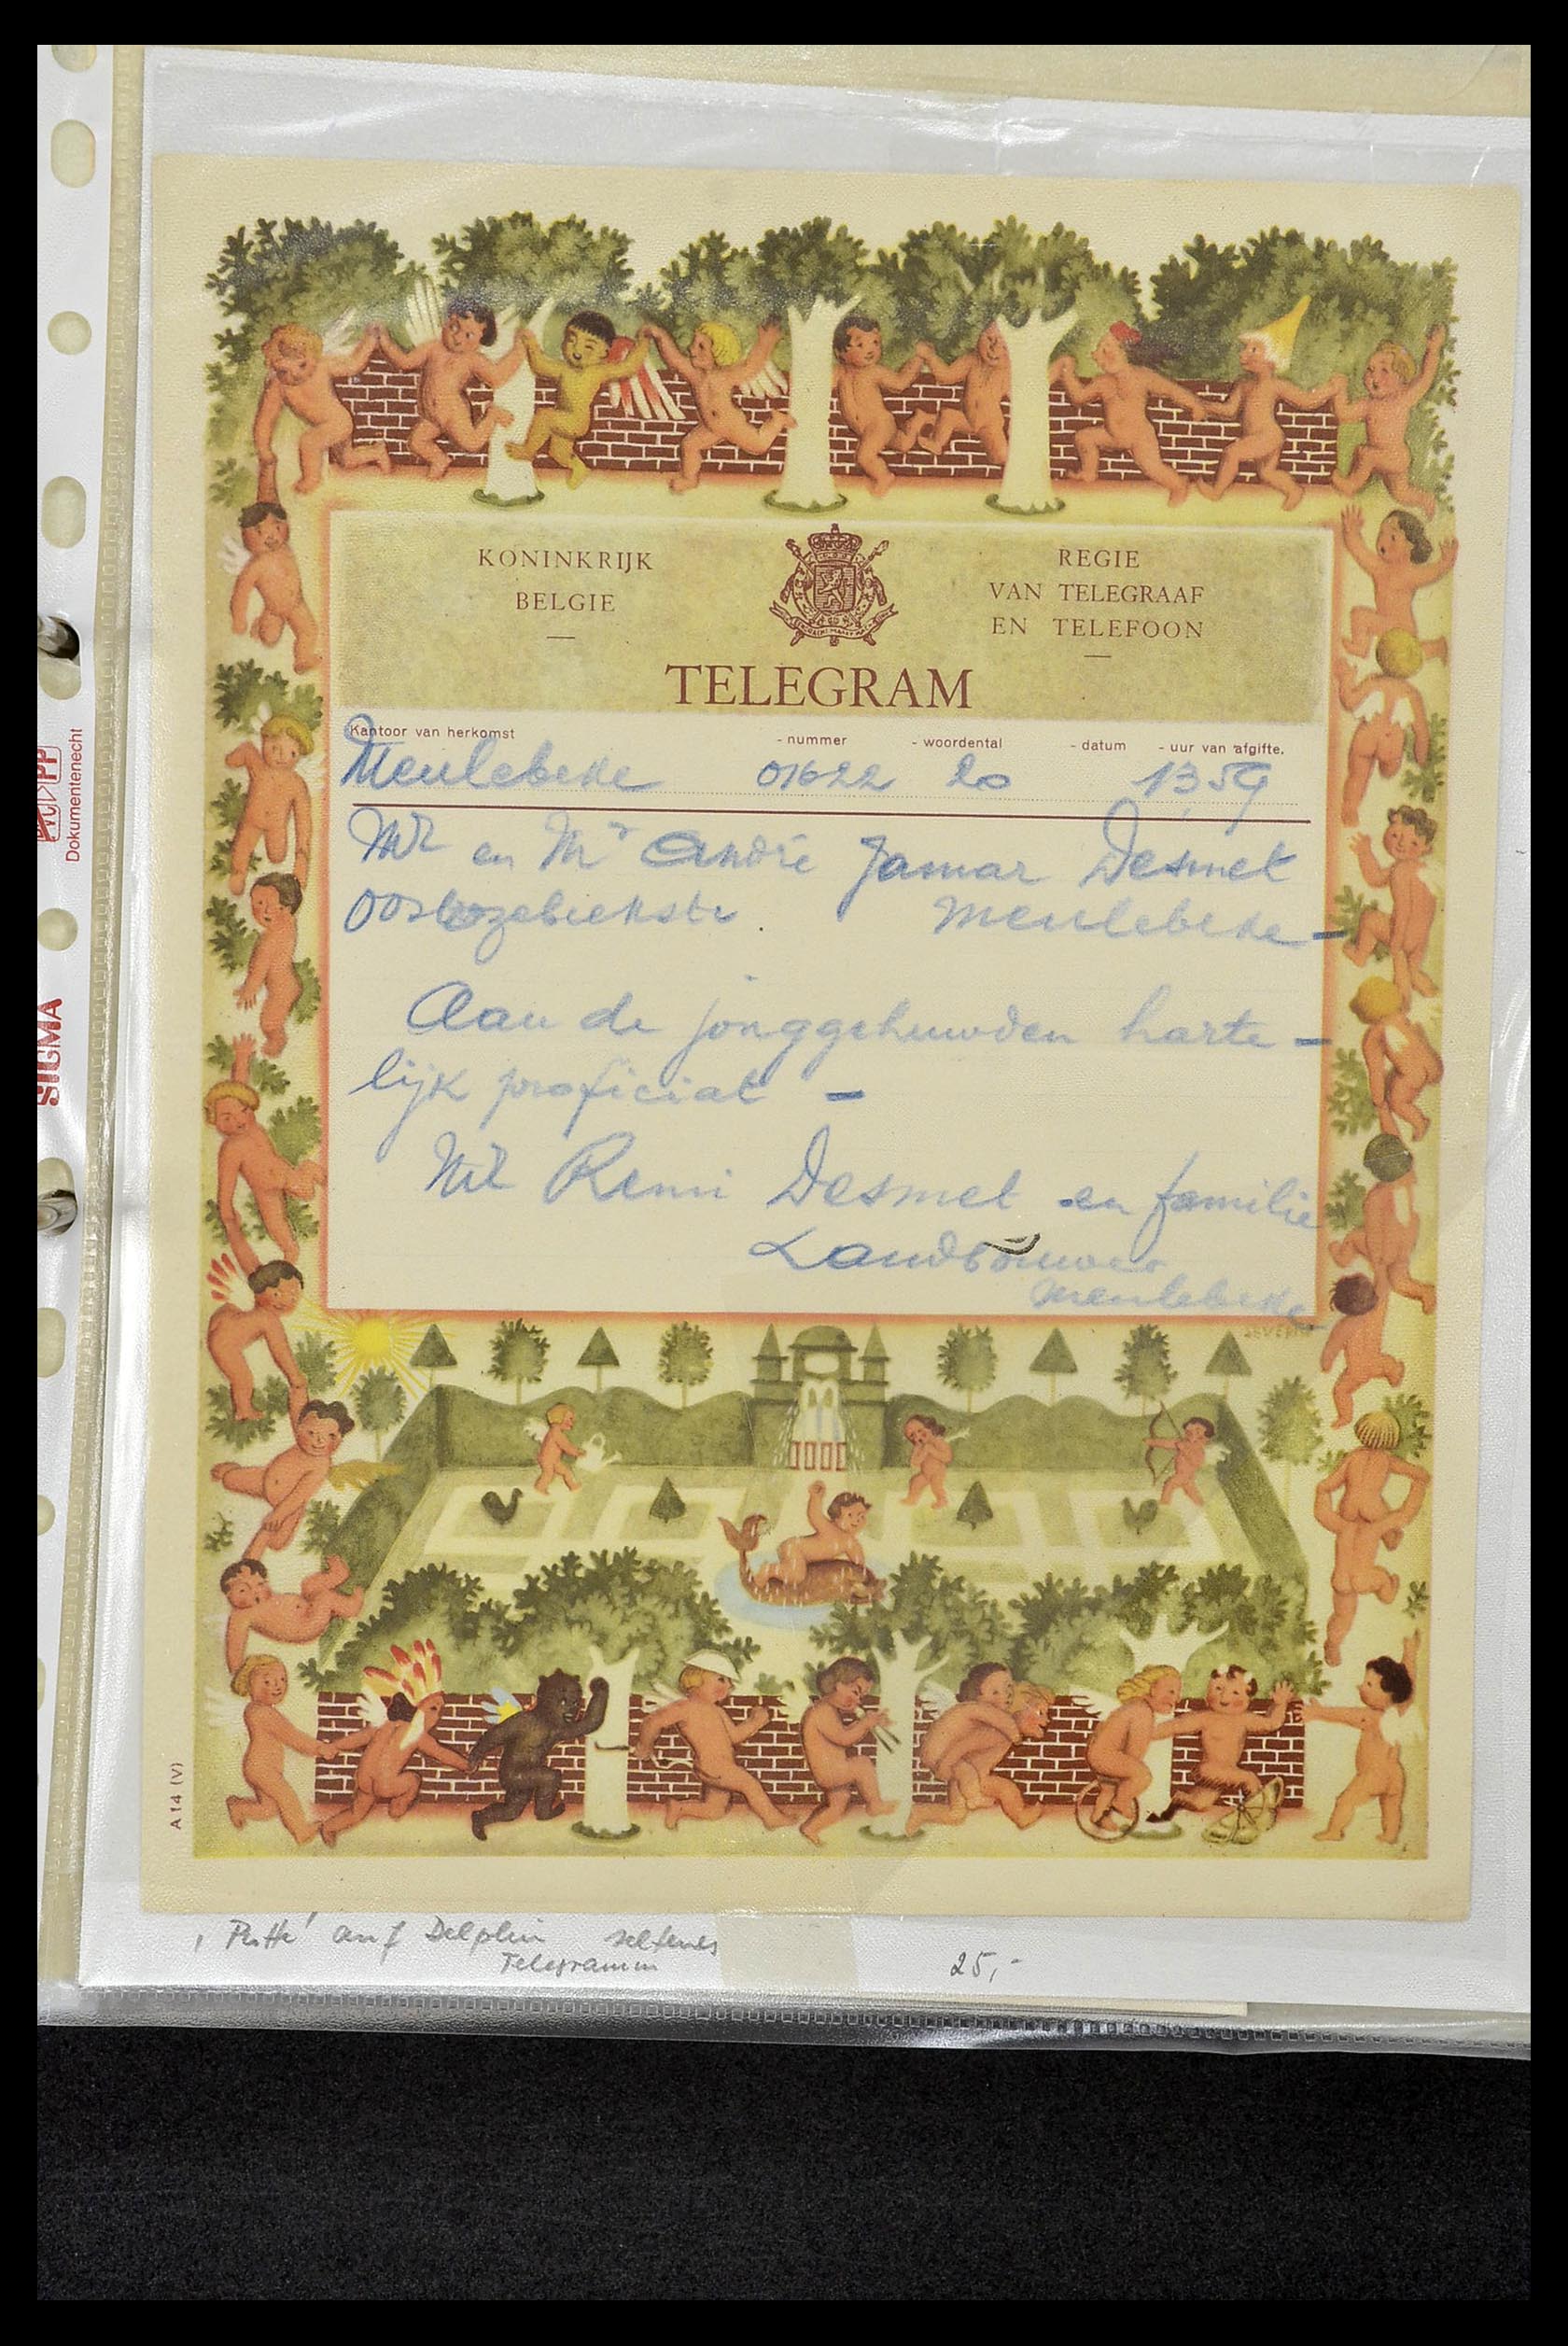 KONINKRIJK
BELGIE
REGIE
VAN TELEGRAAF
EN TELEFOON
TELEGRAM
Kantoor van herkomst - nummer - woordental - datum - uur van afgifte.
Meulebeke 01622 20 13 59
Mr en Mr André Jamar Desmet
Meulebeke -
Aan de jonggehuwden harte -
lijk proficiat -
Mr Remi Desmet en familie
Landbouwer
Meulebeke
SEVERIN
A 14 (V)
'Putte' auf Delphin seltenes
Telegramm
25,-
Dokumentenecht
SIGMA